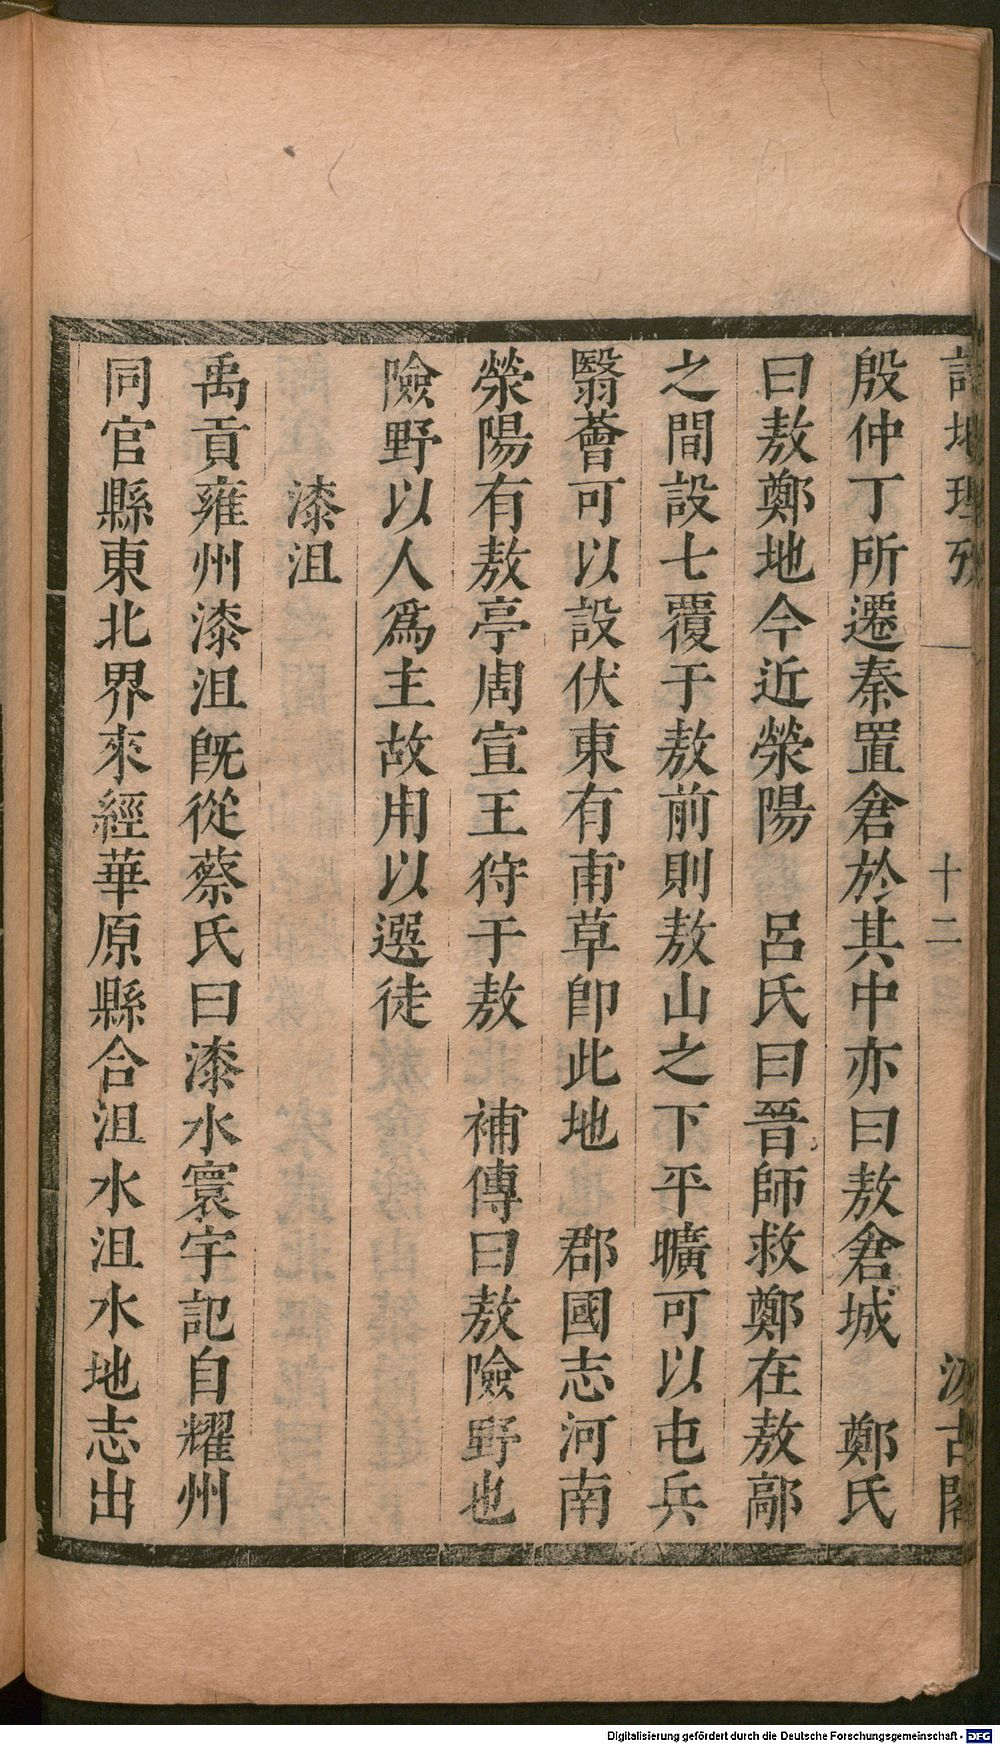 詩地理攷
十二
汲古閣
殷仲丁所遷秦置倉於其中亦曰敖倉城　鄭氏
曰敖鄭地今近滎陽　呂氏曰晉師救鄭在敖鄗
之間設七覆于敖前則敖山之下平曠可以屯兵
翳薈可以設伏東有甫草卽此地　郡國志河南
滎陽有敖亭周宣王狩于敖　補傳曰敖險野也
險野以人爲主故用以選徒
漆沮
禹貢雍州漆沮旣從蔡氏曰漆水寰宇記自耀州
同官縣東北界來經華原縣合沮水沮水地志出
Digitalisierung gefördert durch die Deutsche Forschungsgemeinschaft - DFG